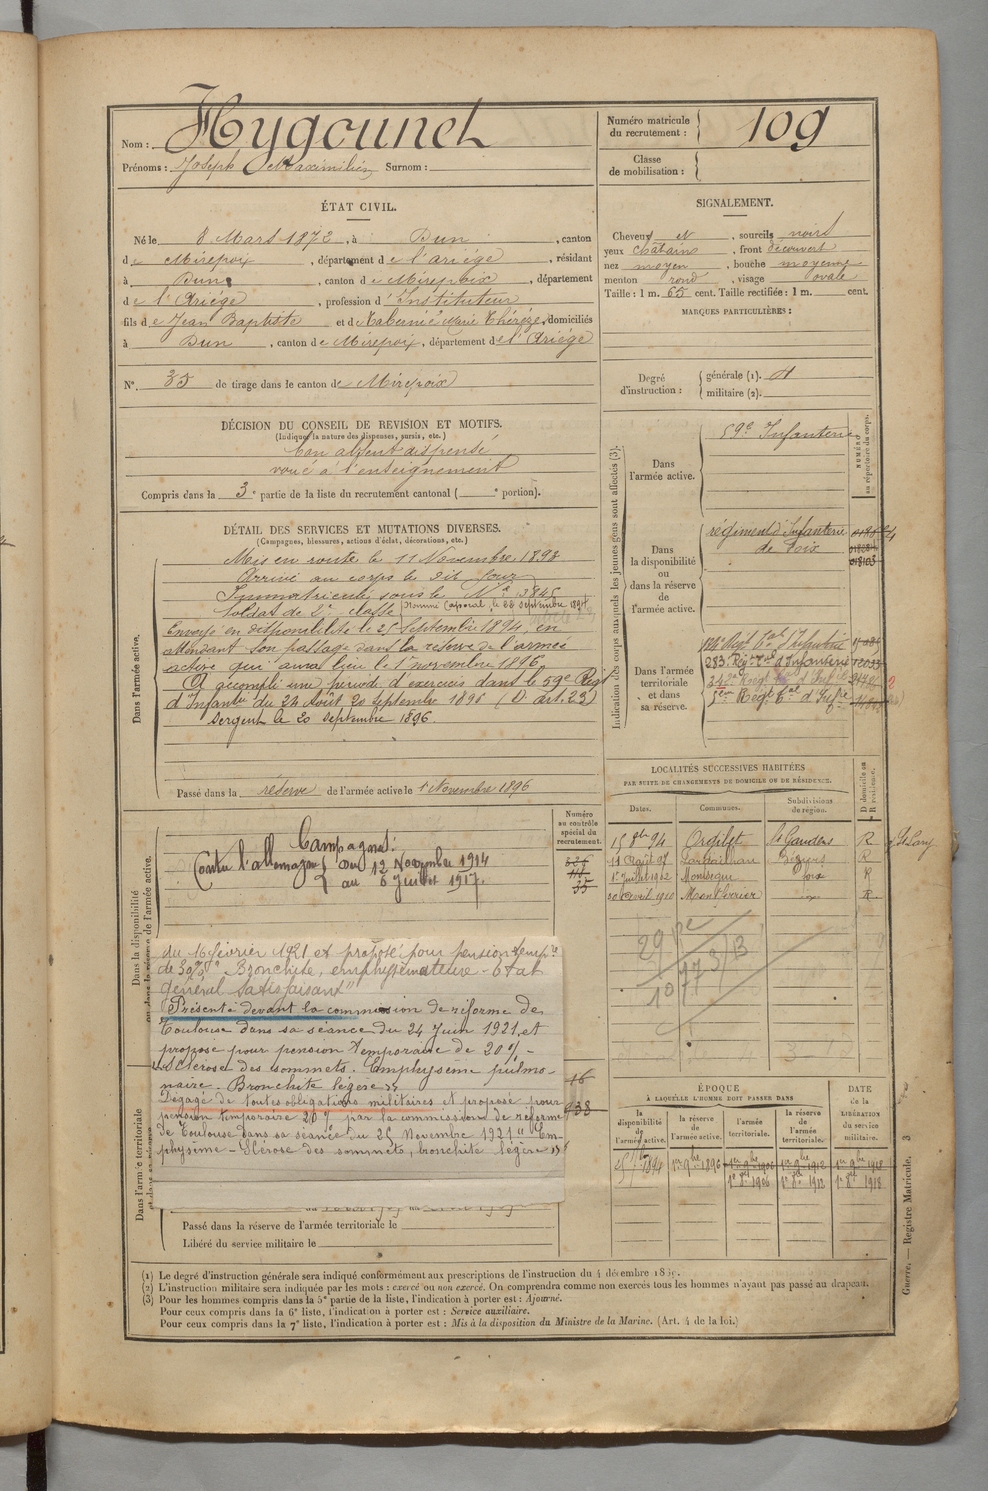 Nom : Hygounet
Prénoms : Joseph Maximilien Surnom :
Numéro matricule du recrutement : 109
Classe de mobilisation :
ÉTAT CIVIL.
Né le 8 Mars 1872, à Dun, canton
de Mirepoix, département de l'ariége, résidant
à Dun, canton de Mirepoix, département
de l'Ariége, profession d'Instituteur
fils de Jean Baptiste et de Marie Thérèze, domiciliés
à Dun, canton de Mirepoix, département de l'Ariége
N° 35 de tirage dans le canton de Mirepoix
SIGNALEMENT.
Cheveux et, sourcils noirs
yeux chatain, front découvert
nez moyen, bouche moyenne
menton rond, visage ovale
Taille : 1 m. 65 cent. Taille rectifiée : 1 m. cent.
MARQUES PARTICULIÈRES :
Degré d'instruction : générale (1).
militaire (2).
DÉCISION DU CONSEIL DE REVISION ET MOTIFS.
(Indiquer la nature des dispenses, sursis, etc.)
bon absent dispensé
voué à l'enseignement
Compris dans la 3e partie de la liste du recrutement cantonal ( e portion).
DÉTAIL DES SERVICES ET MUTATIONS DIVERSES.
(Campagnes, blessures, actions d'éclat, décorations, etc.)
Dans l'armée active.
Mis en route le 11 Novembre 1893
Arrivé au corps le dit jour
Immatriculé sous le N° 3845
Soldat de 2e classe Nommé Caporal, le 28 Septembre 1894
Envoyé en disponibilité le 25 Septembre 1894, en
attendant son passage dans la réserve de l'armée
active qui aura lieu le 1er novembre 1896.
A accompli une période d'exercices dans le 59e Régt
d'Infanterie du 24 Août 20 Septembre 1896 (D. art. 23)
Sergent le 20 septembre 1896.
Passé dans la réserve de l'armée active le 1er Novembre 1896
Indication des corps auxquels les jeunes gens sont affectés (3).
NUMÉRO au répertoire du corps.
Dans l'armée active.
59e Infanterie
Dans la disponibilité ou dans la réserve de l'armée active.
régiment d'Infanterie
de Foix
Dans l'armée territoriale et dans sa réserve.
283e Régt d'Infanterie
LOCALITÉS SUCCESSIVES HABITÉES
PAR SUITE DE CHANGEMENTS DE DOMICILE OU DE RÉSIDENCE.
Dates. Communes. Subdivisions de région. D domicile ou R résidence.
15 8bre 94 Ordilet St Gaudens R
11 Août 97 Béziers R
1er Juillet 1902 Montségur Foix R
1910 Montferrier R
Numéro au contrôle spécial du recrutement.
Dans la disponibilité ou dans la réserve de l'armée active.
Campagnes:
Contre l'allemagne du 12 Novembre 1914
au 6 Juillet 1917.
du 16 février 1921 et proposé pour pension tempre
de 30% "Bronchite, emphysémateuse - Etat
général satisfaisant"
Présenté devant la commission de réforme de
Toulouse dans sa séance du 24 Juin 1921, et
proposé pour pension temporaire de 20% -
"Sclérose des sommets. Emphysème pulmo-
naire. Bronchite légère"
Dégagé de toutes obligations militaires et proposé pour
pension temporaire 20% par la commission de réforme
de Toulouse dans sa séance du 25 Novembre 1921 "Em-
physème - Sclérose des sommets, bronchite légère"
Dans l'armée territoriale et dans sa réserve.
Passé dans la réserve de l'armée territoriale le
Libéré du service militaire le
ÉPOQUE
À LAQUELLE L'HOMME DOIT PASSER DANS
la disponibilité de l'armée active. la réserve de l'armée active. l'armée territoriale. la réserve de l'armée territoriale.
DATE de la LIBÉRATION du service militaire.
1er 9bre 1896 1er 9bre 1906 1er 9bre 1912 1er 9bre 1918
1er 8bre 1906 1er 8bre 1912 1er 8bre 1918
(1) Le degré d'instruction générale sera indiqué conformément aux prescriptions de l'instruction du 4 décembre 1889.
(2) L'instruction militaire sera indiquée par les mots : exercé ou non exercé. On comprendra comme non exercés tous les hommes n'ayant pas passé au drapeau.
(3) Pour les hommes compris dans la 5e partie de la liste, l'indication à porter est : Ajourné.
Pour ceux compris dans la 6e liste, l'indication à porter est : Service auxiliaire.
Pour ceux compris dans la 7e liste, l'indication à porter est : Mis à la disposition du Ministre de la Marine. (Art. 4 de la loi.)
Guerre. — Registre Matricule. 3